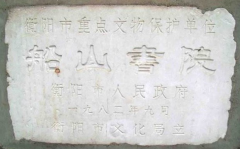 衡阳市重点文物保护单位
船山书院
衡阳市人民政府
一九八二年九月
衡阳市文化局立